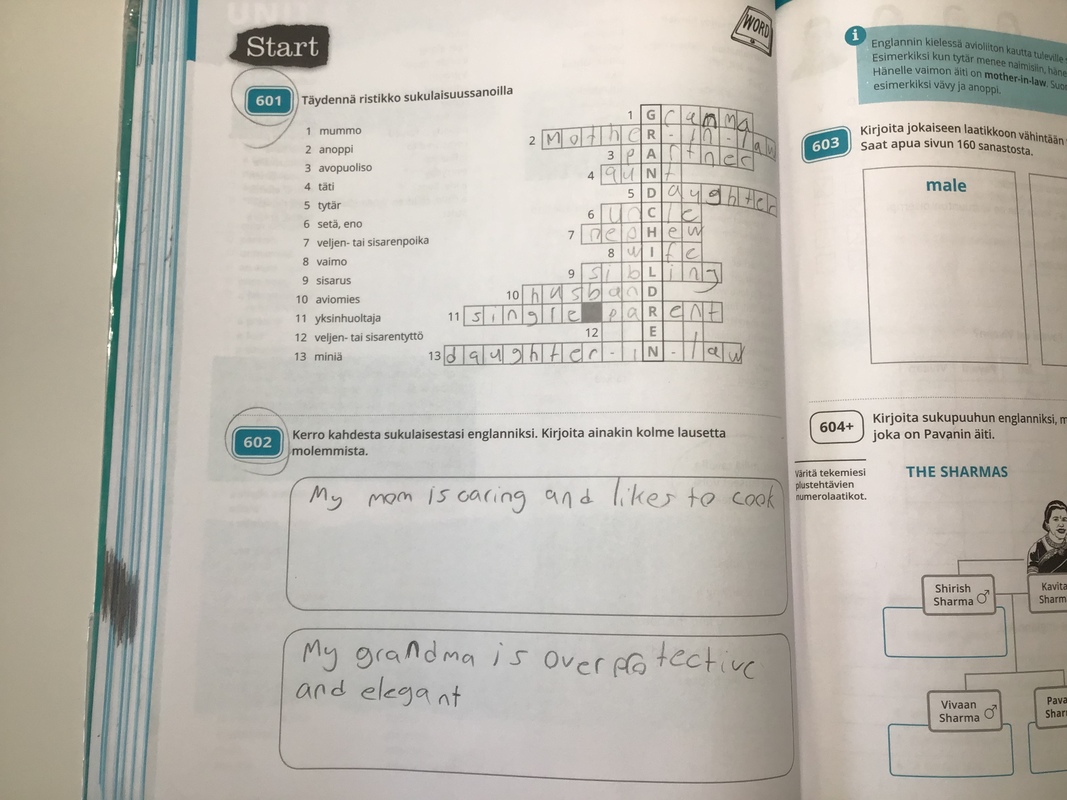 UNIT
Start
WORD
601 Täydennä ristikko sukulaisuussanoilla
1 mummo
2 anoppi
3 avopuoliso
4 täti
5 tytär
6 setä, eno
7 veljen- tai sisarenpoika
8 vaimo
9 sisarus
10 aviomies
11 yksinhuoltaja
12 veljen- tai sisarentyttö
13 miniä
1 Granma
2 MotheR-in-law
3 pArtner
4 auNt
5 Daughter
6 unCle
7 nepHew
8 wIfe
9 sibLing
10 husbanD
11 single paRent
12 E
13 daughter-iN-law
602 Kerro kahdesta sukulaisestasi englanniksi. Kirjoita ainakin kolme lausetta
molemmista.
My mom is caring and likes to cook
My grandma is overprotective
and elegant
i Englannin kielessä avioliiton kautta tuleville
Esimerkiksi kun tytär menee naimisiin, häne
Hänelle vaimon äiti on mother-in-law. Suo
esimerkiksi vävy ja anoppi.
603 Kirjoita jokaiseen laatikkoon vähintään
Saat apua sivun 160 sanastosta.
male
604+ Kirjoita sukupuuhun englanniksi, m
joka on Pavanin äiti.
Väritä tekemiesi
plustehtävien
numerolaatikot.
THE SHARMAS
Shirish
Sharma ♂
Kavita
Sharm
Vivaan
Sharma ♂
Pava
Shar